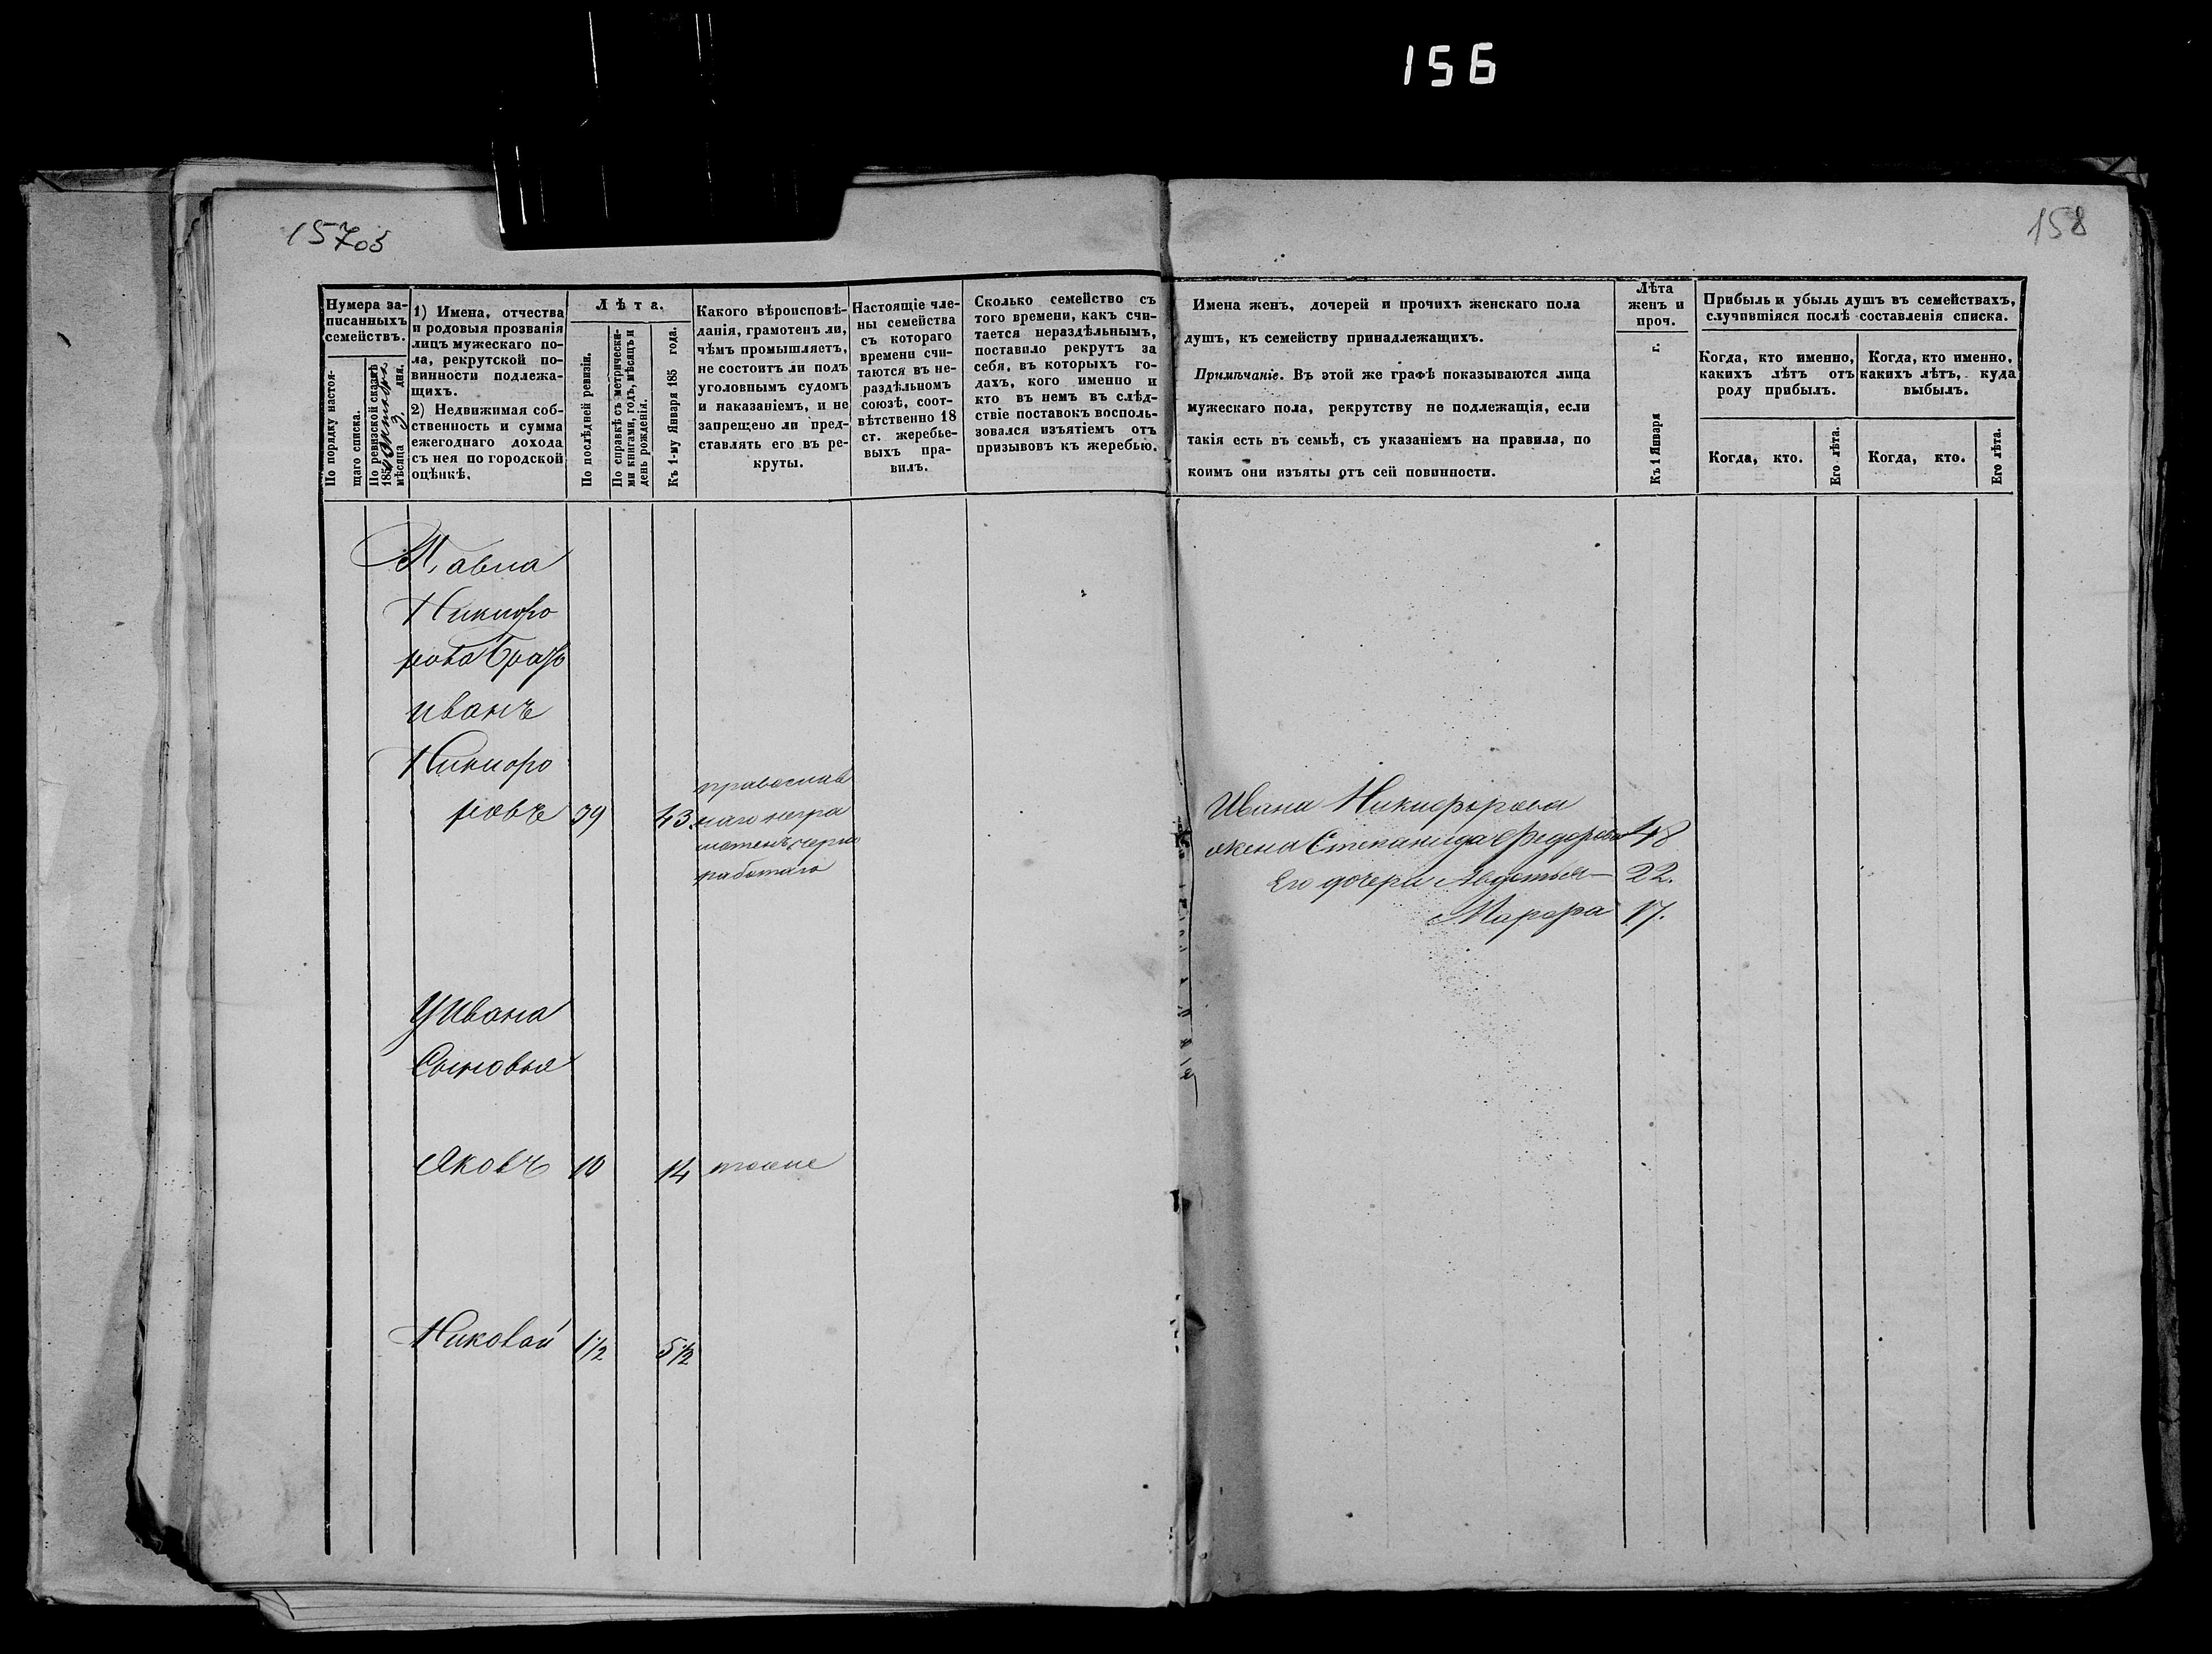 156
157об
158
Нумера за-
писанныхъ
семействъ.
По порядку настоя-
щаго списка.
По ревизской сказкѣ
185
мѣсяца 3 дня.
1) Имена, отчества
и родовыя прозванія
лицъ мужескаго по-
ла, рекрутской по-
винности подлежа-
щихъ.
2) Недвижимая соб-
ственность и сумма
ежегоднаго дохода
съ нея по городской
оцѣнкѣ.
Лѣта.
По послѣдней ревизіи.
По справкѣ съ метрически-
ми книгами, годъ, мѣсяцъ и
день рожденія.
Къ 1-му Января 185 года.
Какого вѣроисповѣ-
данія, грамотенъ ли,
чѣмъ промышляетъ,
не состоитъ ли подъ
уголовнымъ судомъ
и наказаніемъ, и не
запрещено ли пред-
ставлять его въ ре-
круты.
Настоящіе чле-
ны семейства
съ котораго
времени счи-
таются въ не-
раздѣльномъ
союзѣ, соот-
вѣтственно 18
ст. жеребье-
выхъ пра-
вилъ.
Сколько семейство съ
того времени, какъ счи-
тается нераздѣльнымъ,
поставило рекрутъ за
себя, въ которыхъ го-
дахъ, кого именно и
кто въ немъ въ слѣд-
ствіе поставокъ восполь-
зовался изъятіемъ отъ
призывовъ къ жеребью.
Имена женъ, дочерей и прочихъ женскаго пола
душъ, къ семейству принадлежащихъ.
Примѣчаніе. Въ этой же графѣ показываются лица
мужескаго пола, рекрутству не подлежащія, если
такія есть въ семьѣ, съ указаніемъ на правила, по
коимъ они изъяты отъ сей повинности.
Лѣта
женъ и
проч.
Къ 1 Января г.
Прибыль и убыль душъ въ семействахъ,
случившіяся послѣ составленія списка.
Когда, кто именно,
какихъ лѣтъ отъ
роду прибылъ.
Когда, кто именно,
какихъ лѣтъ, куда
выбылъ.
Когда, кто.
Его лѣта.
Когда, кто.
Его лѣта.
Павла
Никифо
рова братъ
Иванъ
Никифо
ровъ 39 43
православ
наго негра
мотенъ черно
работаю
Ивана Никифорова
жена Степанида Федорова 48
Его дочери Авдотья — 22.
Марфа 17.
У Ивана
Сыновья
Яковъ 10 14 тоже
Николай 1 1/2 5 1/2